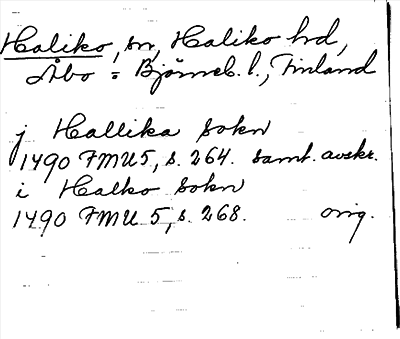 Haliko, sn, Haliko hd,
Åbo = Björneb. l., Finland
j Hallika sokn
1490 FMU 5, s. 264. samt. avskr.
i Halko sokn
1490 FMU 5, s. 268. orig.